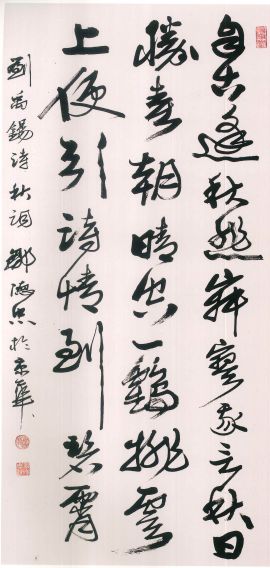 自古逢秋悲寂寥我言秋日
勝春朝晴空一鶴排雲
上便引詩情到碧霄
劉禹錫詩秋詞 鄒德忠於京華